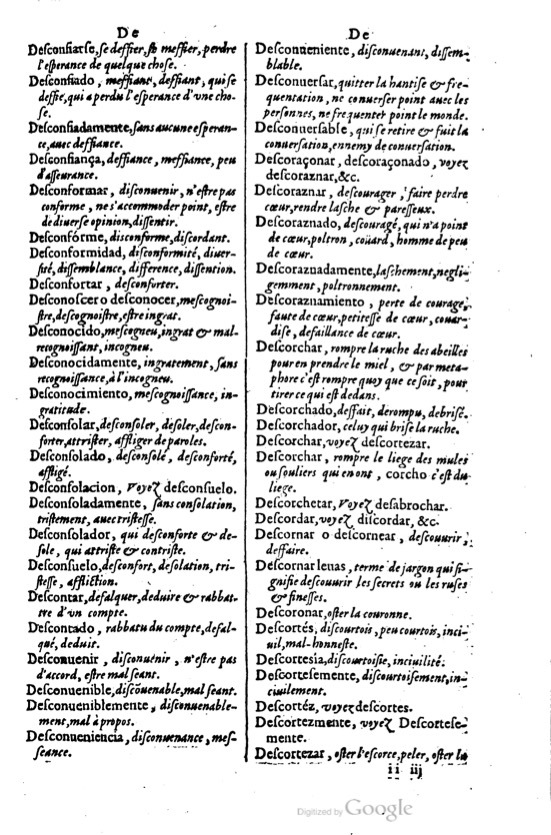 De
Desconfiarse, se deffier, se meffier, perdre
l'esperance de quelque chose.
Desconfiado, meffiant, deffiant, qui se
deffie, qui a perdu l'esperance d'vne cho-
se.
Desconfiadamente, sans aucune esperan-
ce, auec deffiance.
Desconfiança, deffiance, meffiance, peu
d'asseurance.
Desconformar, disconuenir, n'estre pas
conforme, ne s'accommoder point, estre
de diuerse opinion, dissentir.
Desconfórme, disconforme, discordant.
Desconformidad, disconformité, diuer-
sité, dissemblance, difference, dissention.
Desconfortar, desconforter.
Desconoscer o desconocer, mescognoi-
stre, descognoistre, estre ingrat.
Desconocido, mescogneu, ingrat & mal-
recognoissant, incogneu.
Desconocidamente, ingratement, sans
recognoissance, à l'incogneu.
Desconocimiento, mescognoissance, in-
gratitude.
Desconsolar, desconsoler, desoler, descon-
forter, attrister, affliger de paroles.
Desconsolado, desconsolé, desconforté,
affligé.
Desconsolacion, Voyez desconsuelo.
Desconsoladamente, sans consolation,
tristement, auec tristesse.
Desconsolador, qui desconforte & de-
sole, qui attriste & contriste.
Desconsuelo, desconfort, desolation, tri-
stesse, affliction.
Descontar, defalquer, deduire & rabbat-
tre d'vn compte.
Descontado, rabbatu du compte, defal-
qué, deduit.
Desconuenir, disconuenir, n'estre pas
d'accord, estre mal seant.
Desconuenible, discõuenable, mal seant.
Desconueniblemente, disconuenable-
ment, mal à propos.
Desconueniencia, disconuenance, mes-
seance.
De
Desconueniente, disconuenant, dissem-
blable.
Desconuersar, quitter la hantise & fre-
quentation, ne conuerser point auec les
personnes, ne frequenter point le monde.
Desconuersable, qui se retire & fuit la
conuersation, ennemy de conuersation.
Descoraçonar, descoraçonado, voyez
descoraznar, &c.
Descoraznar, descourager, faire perdre
cœur, rendre lasche & paresseux.
Descoraznado, descouragé, qui n'a point
de cœur, poltron, coüard, homme de peu
de cœur.
Descoraznadamente, laschement, negli-
gemment, poltronnement.
Descoraznamiento, perte de courage,
faute de cœur, petitesse de cœur, coüar-
dise, defaillance de cœur.
Descorchar, rompre la ruche des abeilles
pour en prendre le miel, & par meta-
phore c'est rompre quoy que ce soit, pour
tirer ce qui est dedans.
Descorchado, deffait, derompu, debrisé.
Descorchador, celuy qui brise la ruche.
Descorchar, voyez descortezar.
Descorchar, rompre le liege des mules
ou souliers qui en ont, corcho c'est du
liege.
Descorchetar, Voyez desabrochar.
Descordar, voyez discordar, &c.
Descornar o descornear, descouurir,
deffaire.
Descornar leuas, terme de jargon qui si-
gnifie descouurir les secrets ou les ruses
& finesses.
Descoronar, oster la couronne.
Descortés, discourtois, peu courtois, inci-
uil, mal-honneste.
Descortesia, discourtoisie, inciuilité.
Descortesemente, discourtoisement, in-
ciuilement.
Descortéz, voyez descortes.
Descortezmente, voyez Descortese-
mente.
Descortezar, oster l'escorce, peler, oster la
ii iij
Digitized by Google